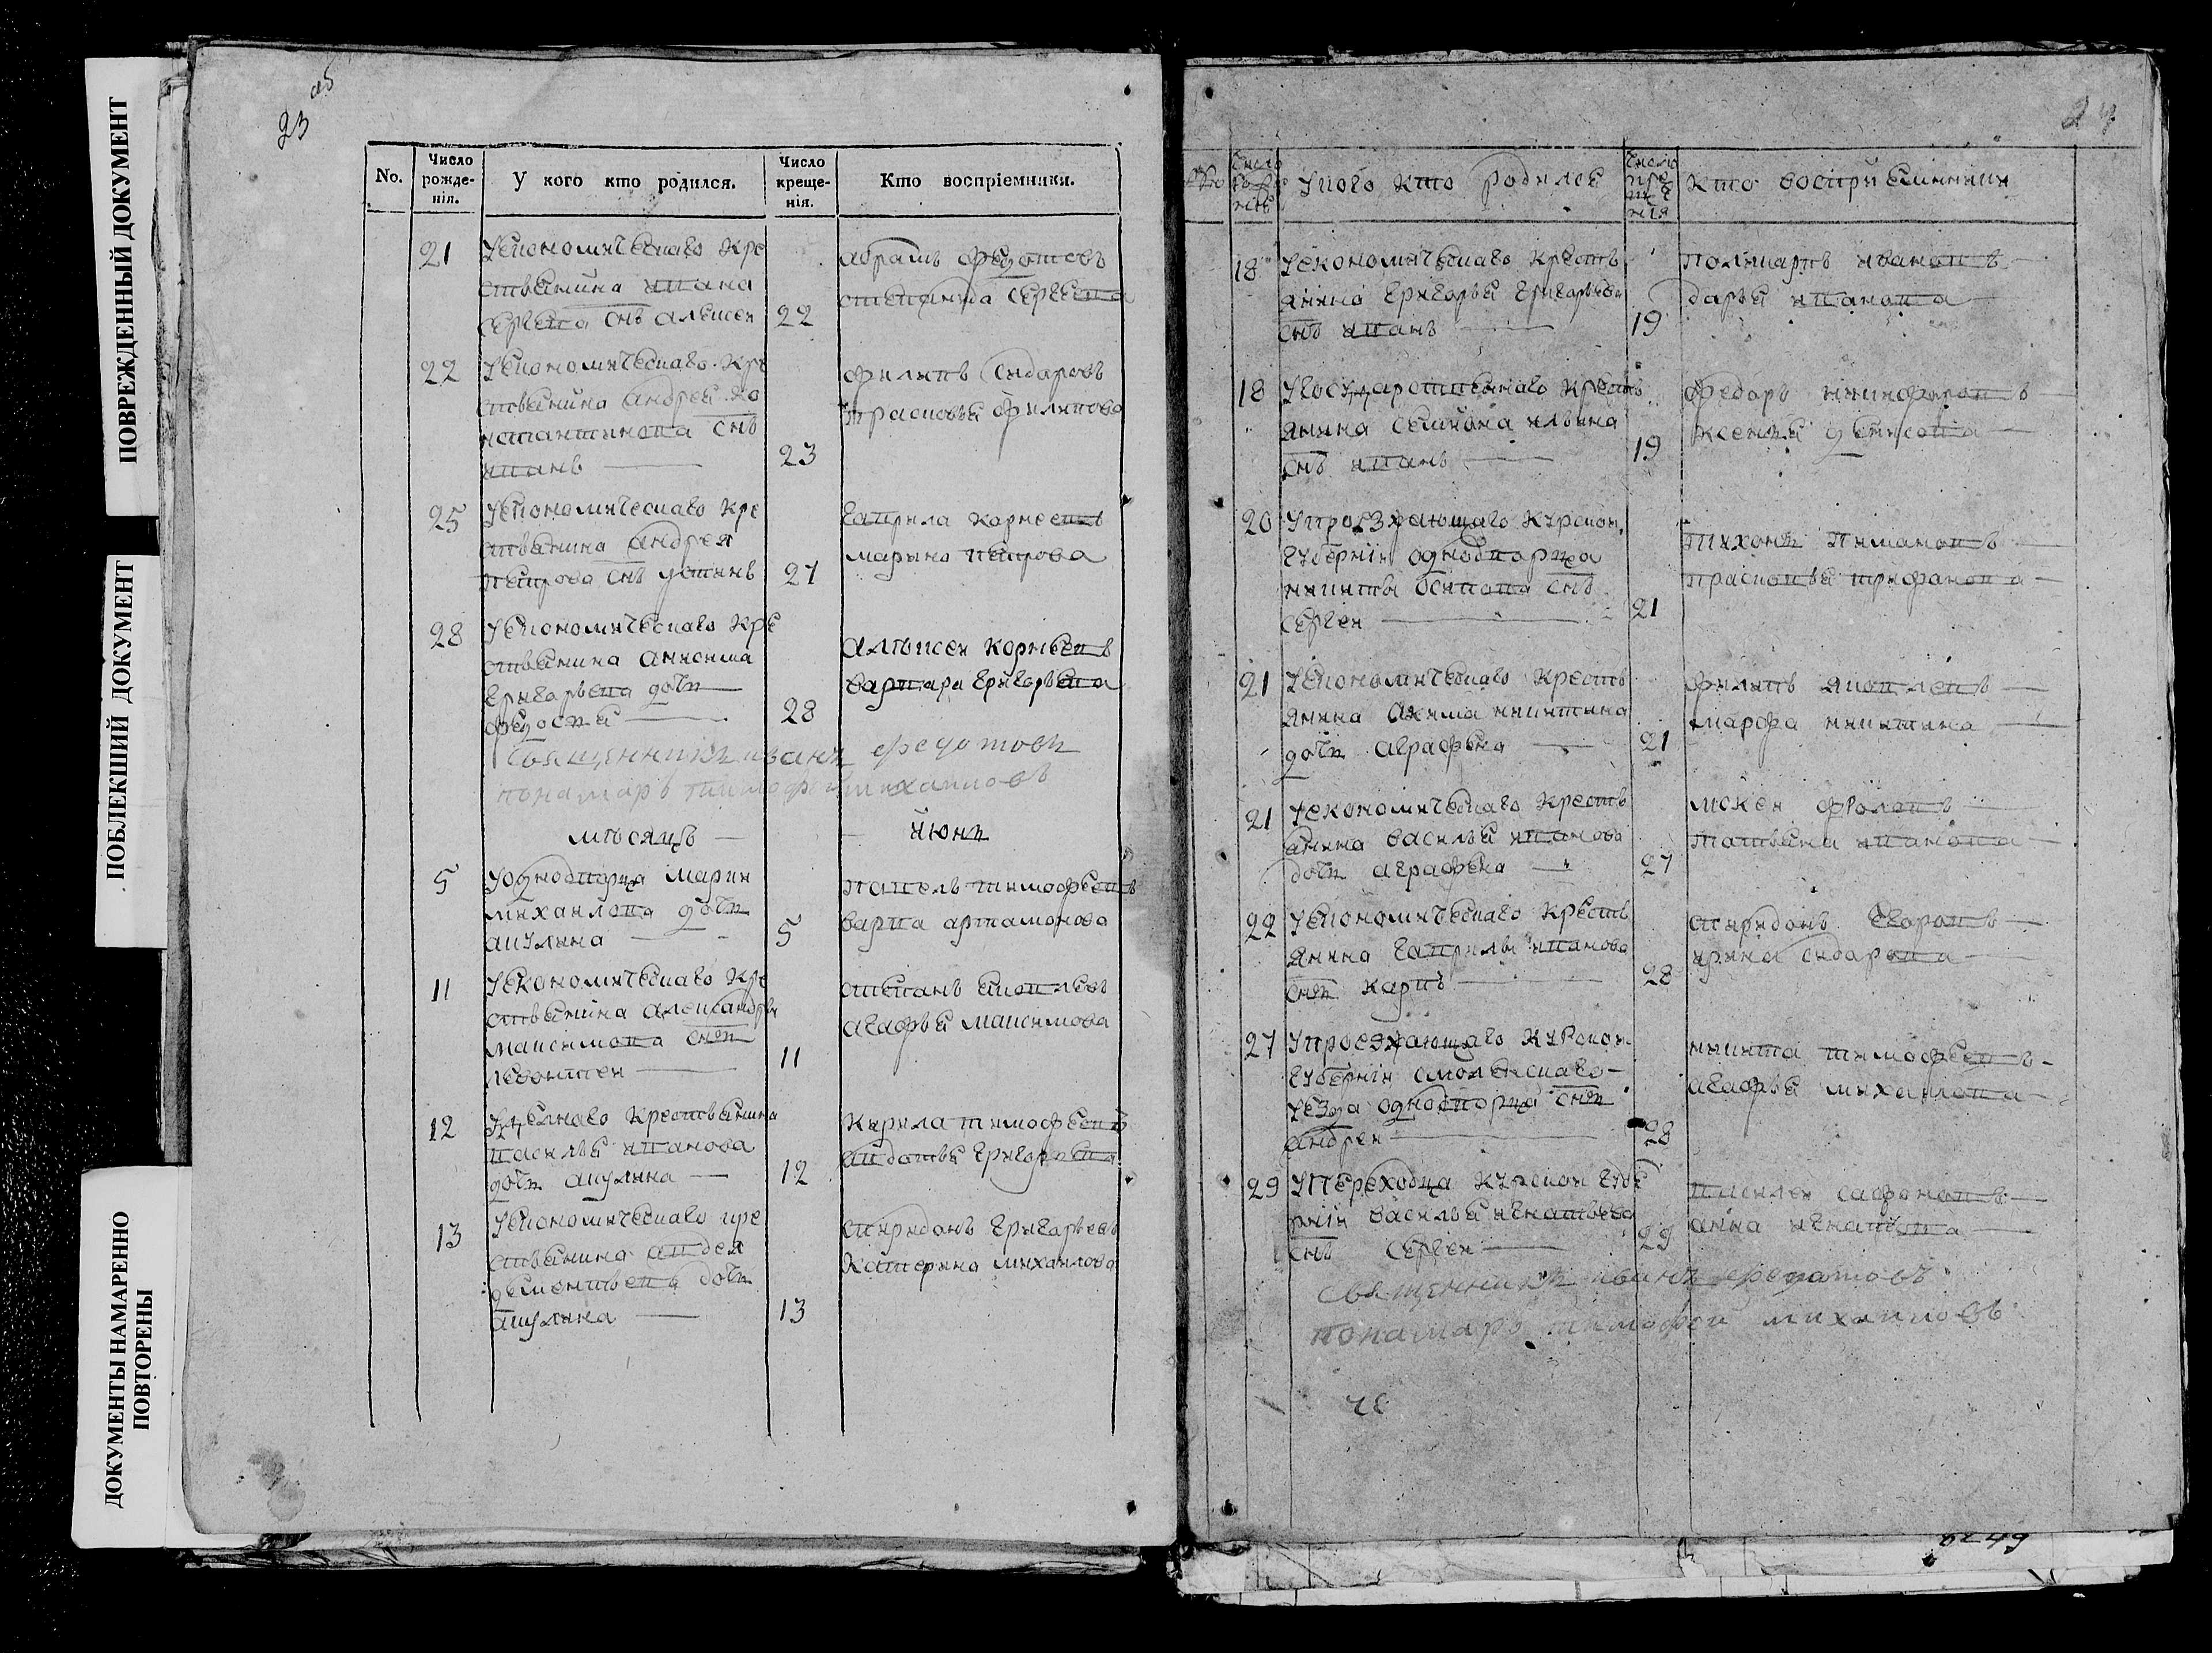 ПОВРЕЖДЕННЫЙ ДОКУМЕНТ
ПОБЛЕКШИЙ ДОКУМЕНТ
ДОКУМЕНТЫ НАМАРЕННО
ПОВТОРЕНЫ
23 об
No.
Число рожде-нія.
У кого кто родился.
Число креще-нія.
Кто воспріемники.
21 Уекономическаго кре
ствянина ивана
сергева снъ алексеи 22
абрамъ федотовъ
степанида сергеева
22 Уекономическаго кре
ствянина андрея ко
нстантинова снъ
иванъ 23
филипъ сидаровъ
прасковья филипова
25 Уекономическаго кре
ствянина андрея
петрова снъ устинъ 27
гаврила карнеевъ
марина петрова
28 Уекономическаго кре
ствянина
григорьева дочь
федосья 28
алѣксеи корнеевъ
варвара григорьева
священникъ иванъ федотовъ
понамарь тимофеи михаиловъ
мѣсяцъ июнь
5 Уоднодворца марки
михаилова дочь
акулина 5
павелъ тимофеевъ
варва артамонова
11 Уекономическаго кре
ствянина александры
максимова снъ
левонтеи 11
степанъ яковлевъ
агафья максимова
12 Уделнаго крествянина
василья иванова
дочь акулина 12
кирила тимофеевъ
авдотья григорьева
13 Уекономическаго кре
ствянина авдея
дементьева дочь
акулина 13
спиридонъ григорьевъ
катерина михаилова
24
число рожде нія
Укого кто родился
число креще нія
кто восприемники
18 Уекономическаго крестъ
янина григорья григорьева
снъ иванъ 19
поликарпъ ивановъ
дарья иванова
18 Угосударственнаго крестъ
янина семиона ильина
снъ иванъ 19
федаръ никифаровъ
ксенья денисова
20 Упроезжающаго курскои
губерніи однодворца
никиты осипова снъ
сергеи 21
тихонъ пимановъ
прасковья трифанова
21 Уекономическаго крестъ
янина акима никитина
дочь аграфена 21
филипъ яковлевъ
марфа никитина
21 Уекономическаго крестъ
янина василья иванова
дочь аграфена 27
мокеи фролевъ
татьяна иванова
22 Уекономическаго крестъ
янина гаврилы иванова
снъ карпъ 28
спиридонъ егаровъ
ирина сидарова
27 Упроезжающаго курскои
губерніи
уезда однодворца снъ
андреи 28
никита тимофеевъ
агафья михаилова
29 Упереходца курскои губе
рніи василья игнатьева
снъ сергеи 29
сафоновъ
анна игнатьева
священникъ иванъ федатовъ
понамарь тимофеи михаиловъ